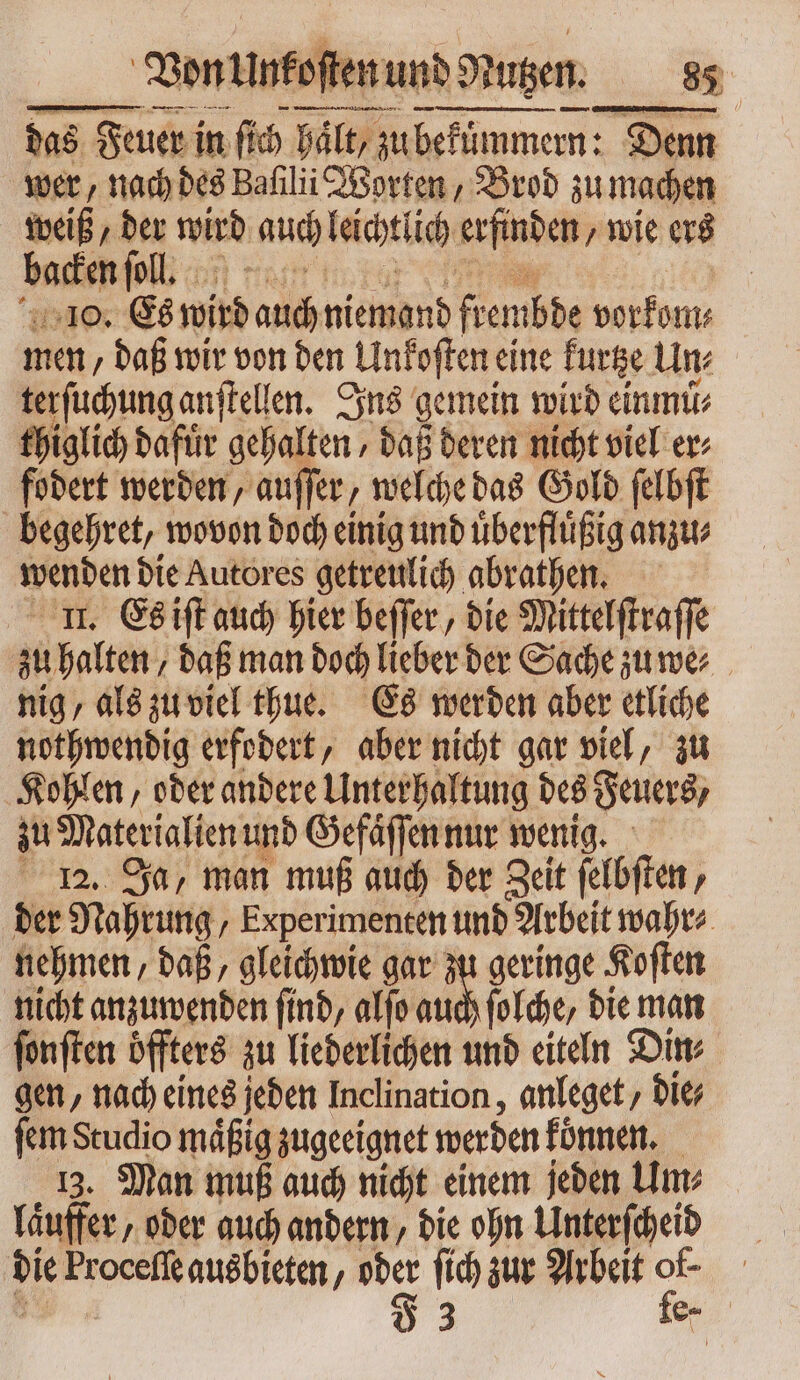 Von Unkoſten und Nutzen. 85
das Feuer in ſich haͤlt, zu bekuͤmmern: Denn
wer, nach des Baſilii Worten, Brod zu machen
weiß, der wird auch leichtlich erfinden, wie ers
backen ſoll.
10. Es wird auch niemand frembde vorkom⸗
men, daß wir von den Unkoſten eine kurtze Un⸗
terſuchung anſtellen. Ins gemein wird einmuͤ⸗
thiglich dafuͤr gehalten, daß deren nicht viel er⸗
fodert werden, auſſer, welche das Gold ſelbſt
begehret, wovon doch einig und uͤberfluͤßig anzu⸗
wenden die Autores getreulich abrathen.
11. Es iſt auch hier beſſer, die Mittelſtraſſe
zu halten, daß man doch lieber der Sache zu we⸗
nig, als zu viel thue. Es werden aber etliche
nothwendig erfodert, aber nicht gar viel, zu
Kohlen, oder andere Unterhaltung des Feuers,
zu Materialien und Gefaͤſſen nur wenig.
12. Ja, man muß auch der Zeit ſelbſten,
der Nahrung, Experimenten und Arbeit wahr⸗
nehmen, daß, gleichwie gar zu geringe Koſten
nicht anzuwenden ſind, alſo auch ſolche, die man
ſonſten oͤffters zu liederlichen und eiteln Din⸗
gen, nach eines jeden Inclination, anleget, die⸗
ſem Studio maͤßig zugeeignet werden koͤnnen.
13. Man muß auch nicht einem jeden Um⸗
laͤuffer, oder auch andern, die ohn Unterſcheid
die Proceſſe ausbieten, oder ſich zur Arbeit of-
F 3 fe-